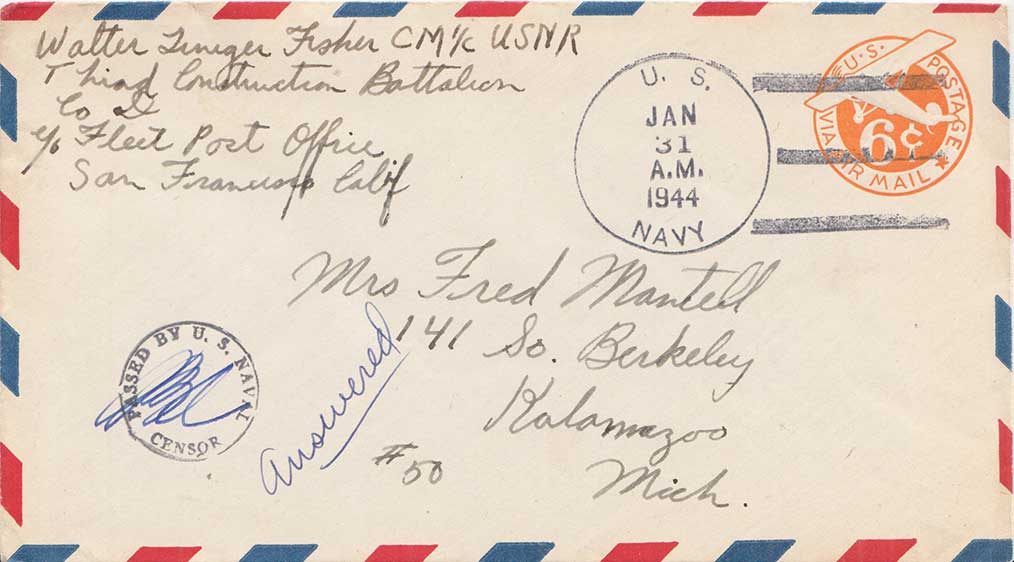 Walter Liniger Fisher CM1/c USNR
Third Construction Battalion
Co D
c/o Fleet Post Office
San Francisco Calif
U. S.
JAN
31
A.M.
1944
NAVY
U.S. POSTAGE
VIA AIR MAIL
6¢
Mrs Fred Mantell
141 So. Berkeley
Kalamazoo
Mich.
PASSED BY U. S. NAVAL
CENSOR
Answered
#50